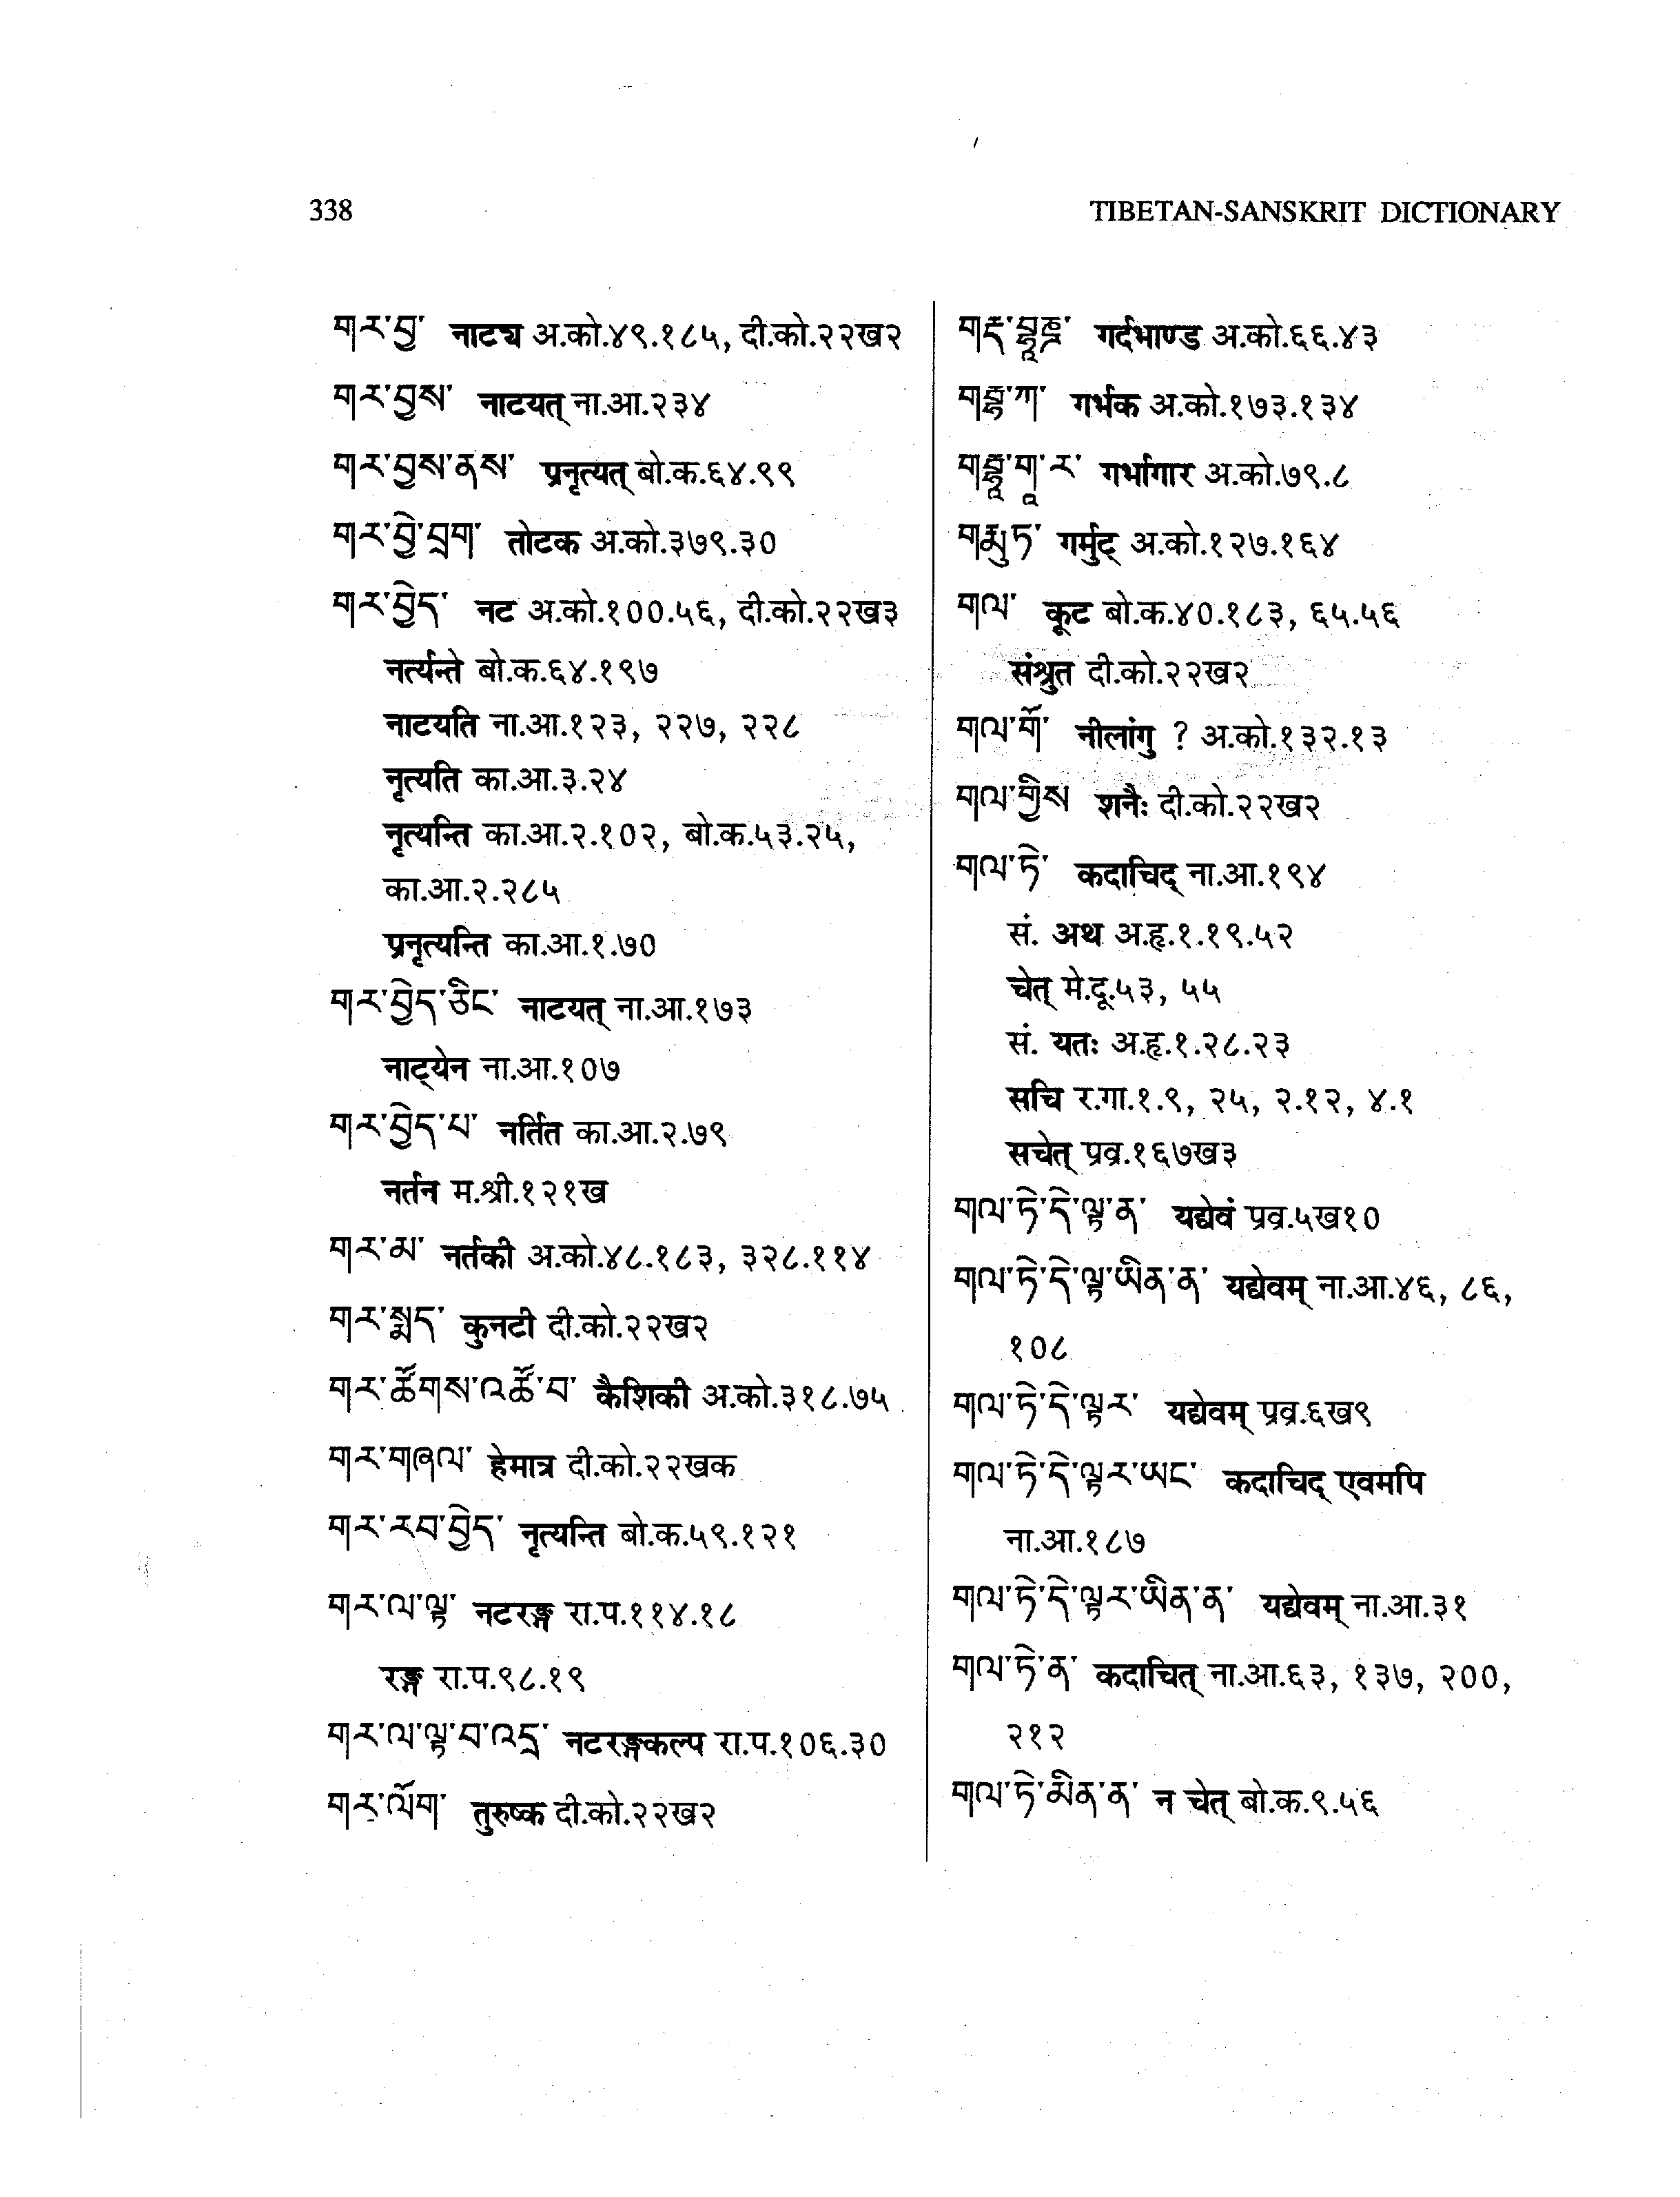 338
TIBETAN-SANSKRIT DICTIONARY
གར་བྱ་ नाट्य अ.को.४९.१८५, दी.को.२२ख२
གར་བྱས་ नाटयत् ना.आ.२३४
གར་བྱས་ནས་ प्रनृत्यत् बो.क.६४.९९
གར་བྱེ་བྲག་ तोटक अ.को.३७९.३०
གར་བྱེད་ नट अ.को.१००.५६, दी.को.२२ख३
नर्त्यन्ते बो.क.६४.१९७
नाटयति ना.आ.१२३, २२७, २२८
नृत्यति का.आ.३.२४
नृत्यन्ति का.आ.२.१०२, बो.क.५३.२५,
का.आ.२.२८५
प्रनृत्यन्ति का.आ.१.७०
གར་བྱེད་ཅིང་ नाटयत् ना.आ.१७३
नाट्येन ना.आ.१०७
གར་བྱེད་པ་ नर्तित का.आ.२.७९
नर्तन म.श्री.१२१ख
གར་མ་ नर्तकी अ.को.४८.१८३, ३२८.११४
གར་སྨད་ कुनटी दी.को.२२ख२
གར་ཚོགས་འཚོ་བ་ कैशिकी अ.को.३१८.७५
གར་གཞལ་ हेमात्र दी.को.२२खक
གར་རབ་བྱེད་ नृत्यन्ति बो.क.५९.१२१
གར་ལ་ལྟ་ नटरङ्ग रा.प.११४.१८
रङ्ग रा.प.९८.१९
གར་ལ་ལྟ་བ་འདྲ་ नटरङ्गकल्प रा.प.१०६.३०
གར་ལོག་ तुरुष्क दी.को.२२ख२
གརྡ་བྷཱཎྜ་ गर्दभाण्ड अ.को.६६.४३
གརྦྷ་ཀ་ गर्भक अ.को.१७३.१३४
གརྦྷཱ་གཱ་ར་ गर्भागार अ.को.७९.८
གརྨུཏ་ गर्मुट् अ.को.१२७.१६४
གལ་ कूट बो.क.४०.१८३, ६५.५६
संश्रुत दी.को.२२ख२
གལ་གོ་ नीलांगु ? अ.को.१३२.१३
གལ་གྱིས शनैः दी.को.२२ख२
གལ་ཏེ་ कदाचिद् ना.आ.१९४
सं. अथ अ.हृ.१.१९.५२
चेत् मे.दू.५३, ५५
सं. यतः अ.हृ.१.२८.२३
सचि र.गा.१.९, २५, २.१२, ४.१
सचेत् प्रव्र.१६७ख३
གལ་ཏེ་དེ་ལྟ་ན་ यद्येवं प्रव्र.५ख१०
གལ་ཏེ་དེ་ལྟ་ཡིན་ན་ यद्येवम् ना.आ.४६, ८६,
१०८
གལ་ཏེ་དེ་ལྟར་ यद्येवम् प्रव्र.६ख९
གལ་ཏེ་དེ་ལྟར་ཡང་ कदाचिद् एवमपि
ना.आ.१८७
གལ་ཏེ་དེ་ལྟར་ཡིན་ན་ यद्येवम् ना.आ.३१
གལ་ཏེ་ན་ कदाचित् ना.आ.६३, १३७, २००,
२१२
གལ་ཏེ་མིན་ན་ न चेत् बो.क.९.५६